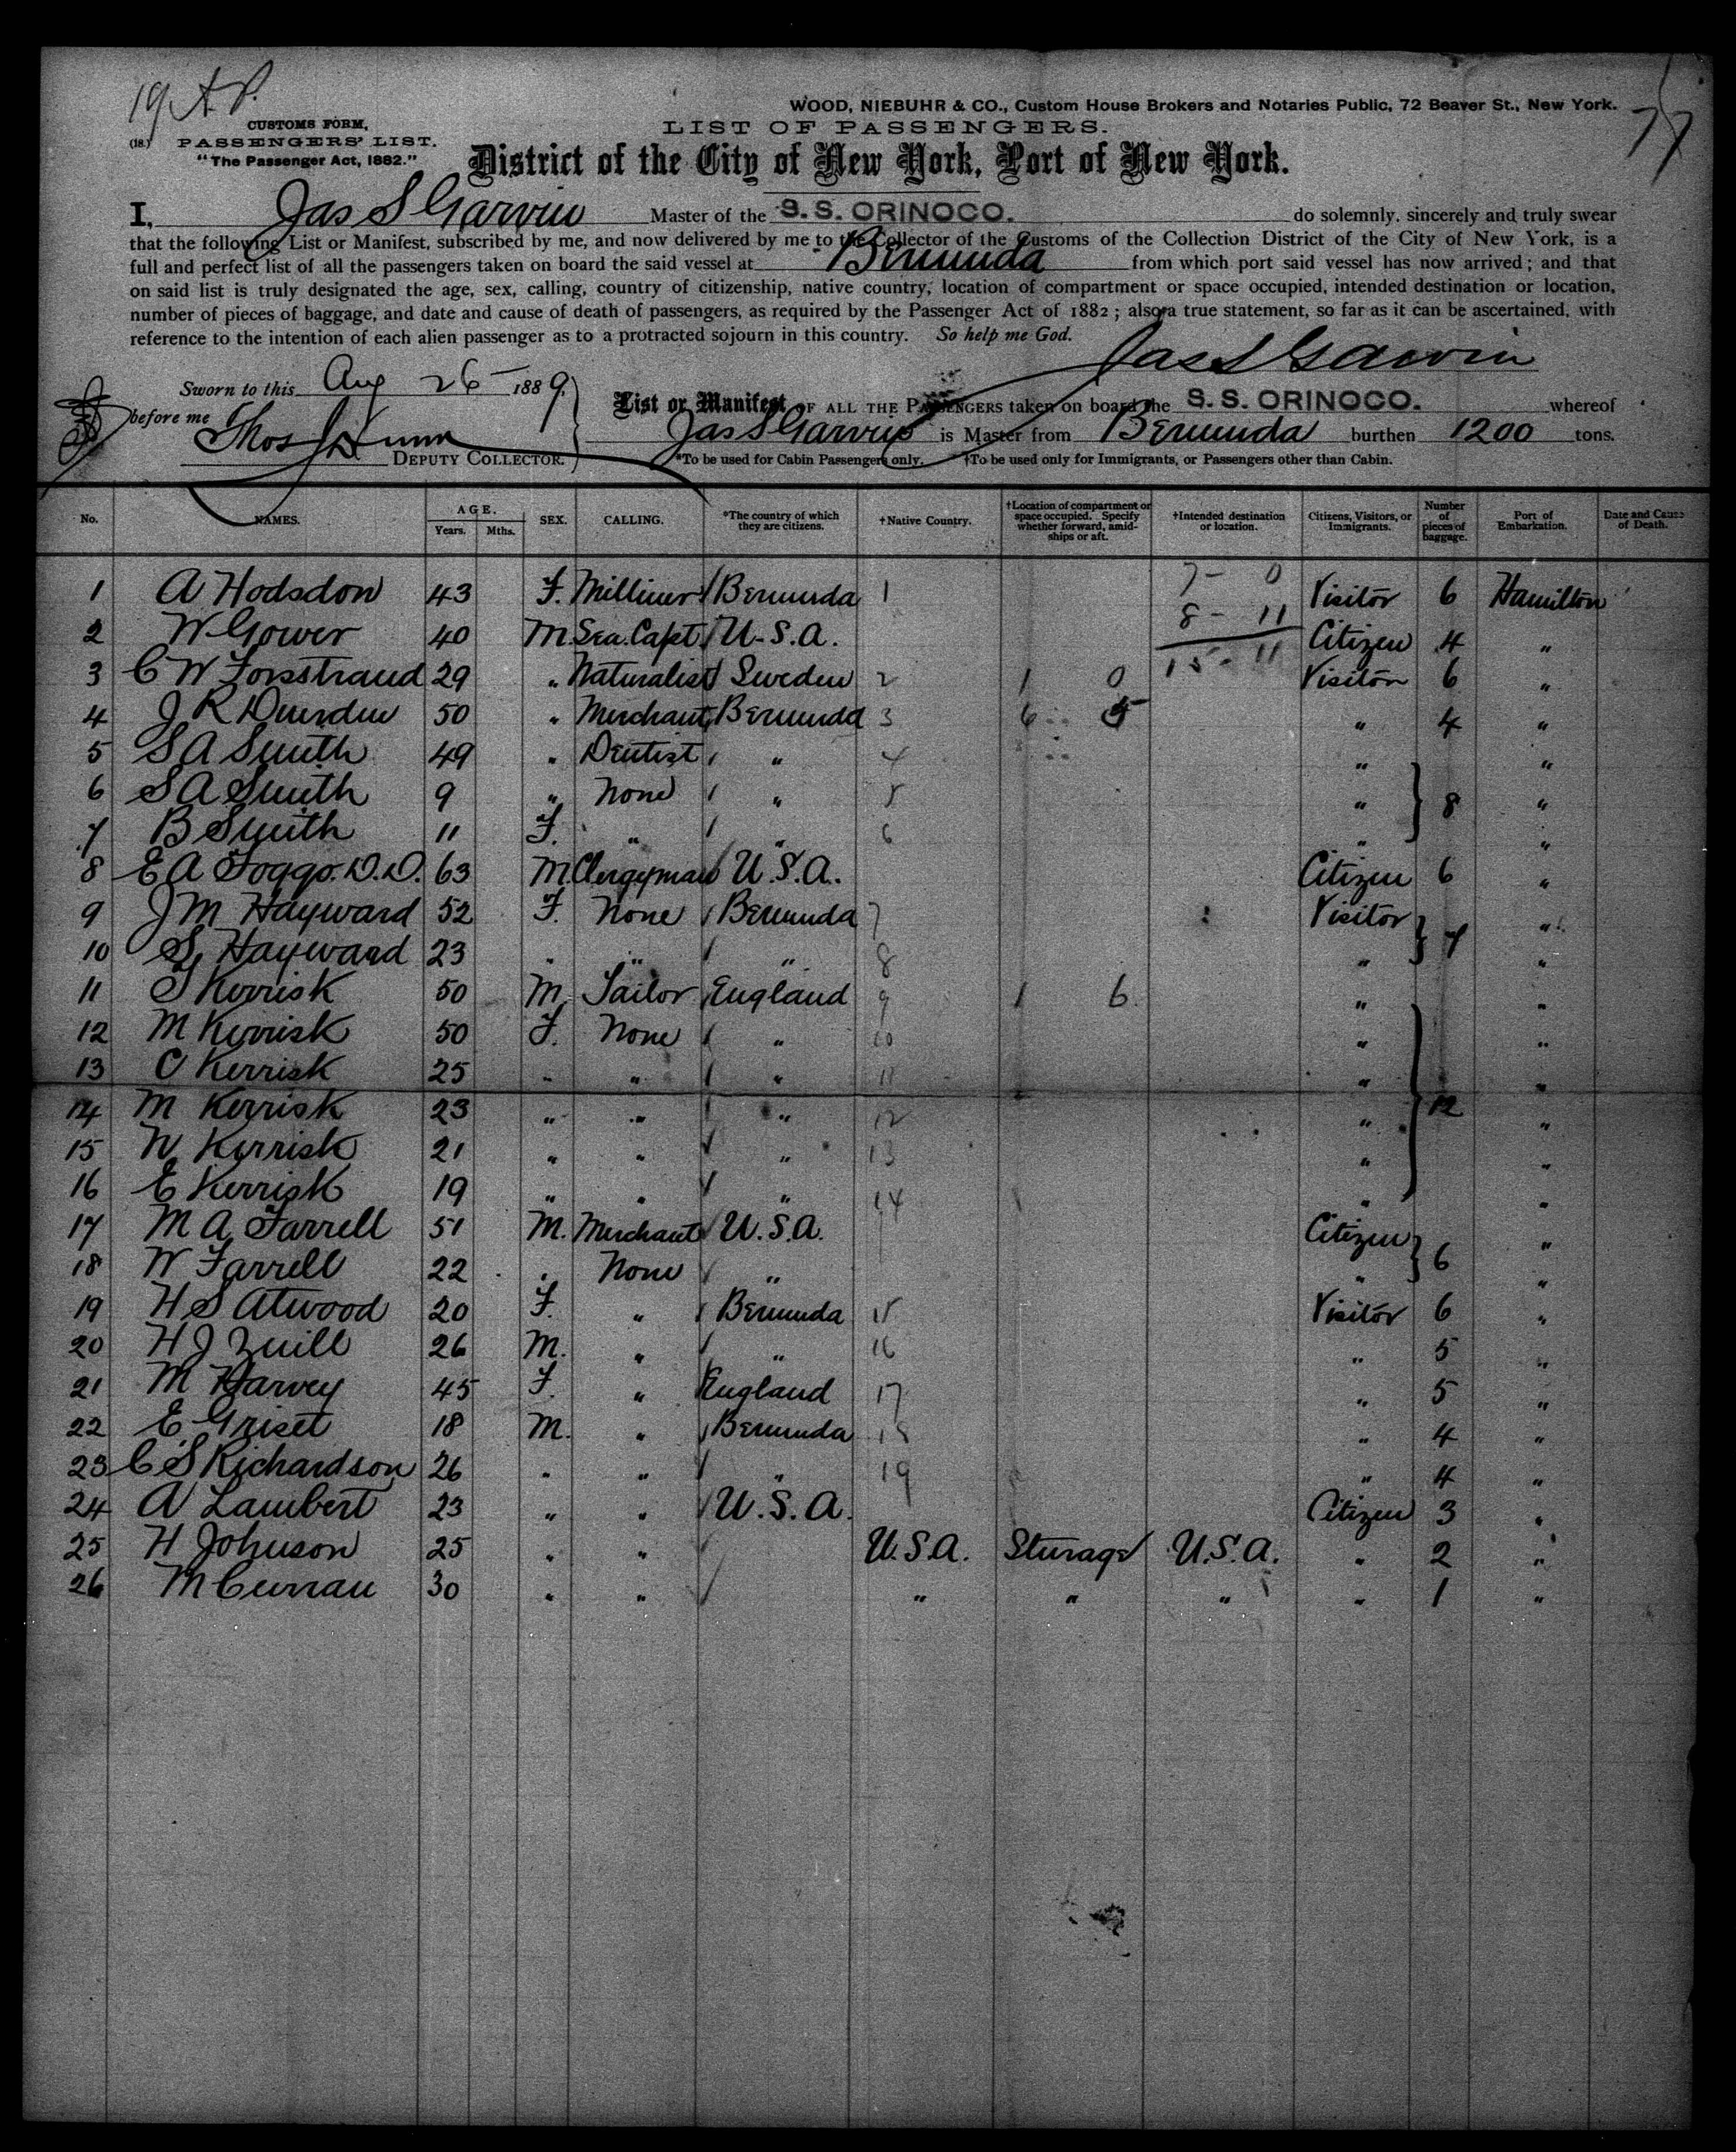 19 A.P.
77
WOOD, NIEBUHR & CO., Custom House Brokers and Notaries Public, 72 Beaver St., New York.
CUSTOMS FORM,
LIST OF PASSENGERS.
(18.) PASSENGERS' LIST.
"The Passenger Act, 1882."
District of the City of New York, Port of New York.
I, Jas S Garvin Master of the S. S. ORINOCO. do solemnly, sincerely and truly swear
that the following List or Manifest, subscribed by me, and now delivered by me to the Collector of the Customs of the Collection District of the City of New York, is a
full and perfect list of all the passengers taken on board the said vessel at Bermuda from which port said vessel has now arrived; and that
on said list is truly designated the age, sex, calling, country of citizenship, native country, location of compartment or space occupied, intended destination or location,
number of pieces of baggage, and date and cause of death of passengers, as required by the Passenger Act of 1882; also a true statement, so far as it can be ascertained, with
reference to the intention of each alien passenger as to a protracted sojourn in this country. So help me God.
Jas S Garvin
Sworn to this Aug 26 1889.
before me
Thos Dunn DEPUTY COLLECTOR.
List or Manifest OF ALL THE PASSENGERS taken on board the S. S. ORINOCO. whereof
Jas S Garvin is Master from Bermuda burthen 1200 tons.
*To be used for Cabin Passengers only. †To be used only for Immigrants, or Passengers other than Cabin.
No. NAMES. AGE. Years. Mths. SEX. CALLING. *The country of which they are citizens. †Native Country. †Location of compartment or space occupied. Specify whether forward, amidships or aft. †Intended destination or location. Citizens, Visitors, or Immigrants. Number of pieces of baggage. Port of Embarkation. Date and Cause of Death.
7 - 0
1 A Hodsdon 43 F. Milliner Bermuda 1 Visitor 6 Hamilton
8 - 11
2 W Gower 40 M. Sea. Capt. U.S.A. Citizen 4 "
15 - 11
3 C W Forsstrand 29 " Naturalist Sweden 2 1 0 Visitor 6 "
4 J R Duerden 50 " Merchant Bermuda 3 6 5 " 4 "
5 S A Smith 49 " Dentist " 4 " "
6 S A Smith 9 " None " 5 " 8 "
7 B Smith 11 F. " " 6 " "
8 E A Foggo. D.D. 63 M. Clergyman U.S.A. Citizen 6 "
9 J M Hayward 52 F. None Bermuda 7 Visitor "
10 S Hayward 23 " " " 8 " 7 "
11 T Kerrisk 50 M. Tailor England 9 1 6 " "
12 M Kerrisk 50 F. None " 10 " "
13 C Kerrisk 25 " " " 11 " "
14 M Kerrisk 23 " " " 12 " 12 "
15 N Kerrisk 21 " " " 13 " "
16 E Kerrisk 19 " " " 14 " "
17 M A Farrell 51 M. Merchant U.S.A. Citizen "
18 W Farrell 22 " None " " 6 "
19 H S Atwood 20 F. " Bermuda 15 Visitor 6 "
20 H J Zuill 26 M. " " 16 " 5 "
21 M Harvey 45 F. " England 17 " 5 "
22 E Griset 18 M. " Bermuda 18 " 4 "
23 C S Richardson 26 " " " 19 " 4 "
24 A Lambert 23 " " U.S.A. Citizen 3 "
25 H Johnson 25 " " U.S.A. Sturage U.S.A. " 2 "
26 M Curran 30 " " " " " " 1 "